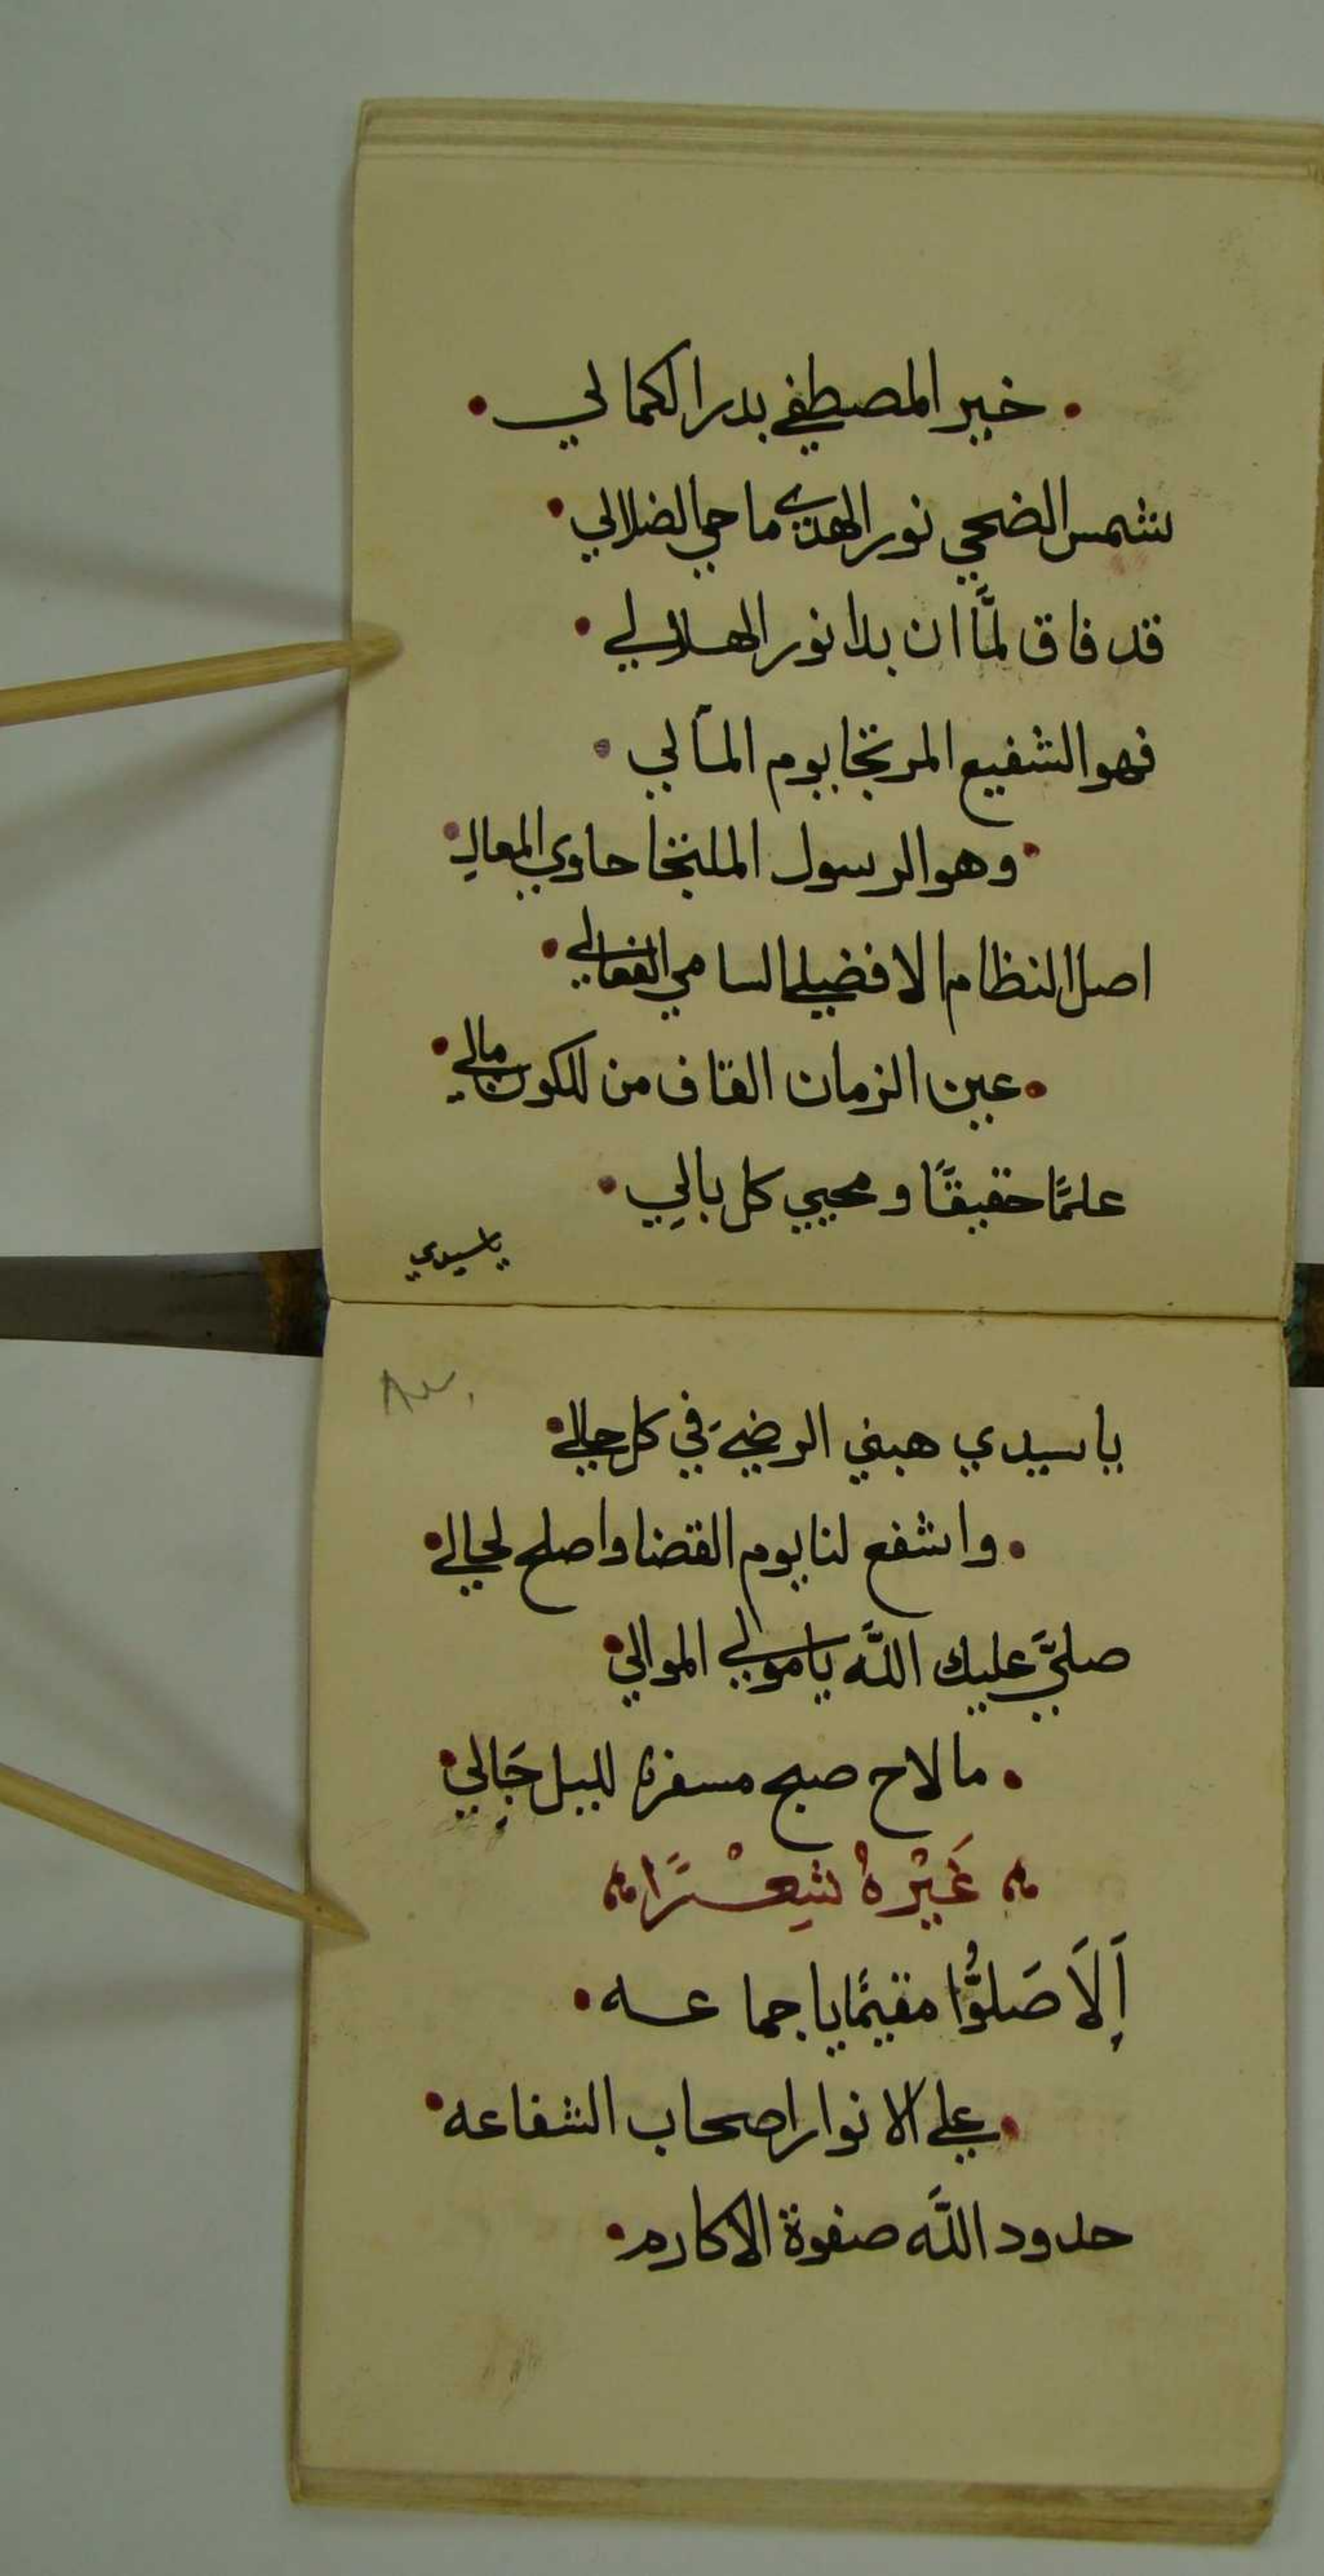 خير المصطفي بدر الكمالي
شمس الضحي نور الهدي ماحي الضلالي
قد فاق لمَّا ان بدا نور الهلالي
فهو الشفيع المرتجا يوم المآلي
وهو الرسول الملتجا حاوي المعالي
اصل النظام الافضلي السامي الفعالي
عين الزمان القاف من للكون مالي
علمًا حقيقًا و محيي كل بالِي
ياسيدي
ياسيدي هبني الرضيَ في كل حالي
واشفع لنا يوم القضا واصلح لحالي
صليَّ عليك اللَّه يامولي الموالي
مالاح صبح مسفرٌ لليل جَالِي
غَيْرهُ شِعْرًا
اَلاَ صَلوُّا مقيمًا يا جماعه
علي الانوار اصحاب الشفاعه
حدود اللَّه صفوة الاكارم